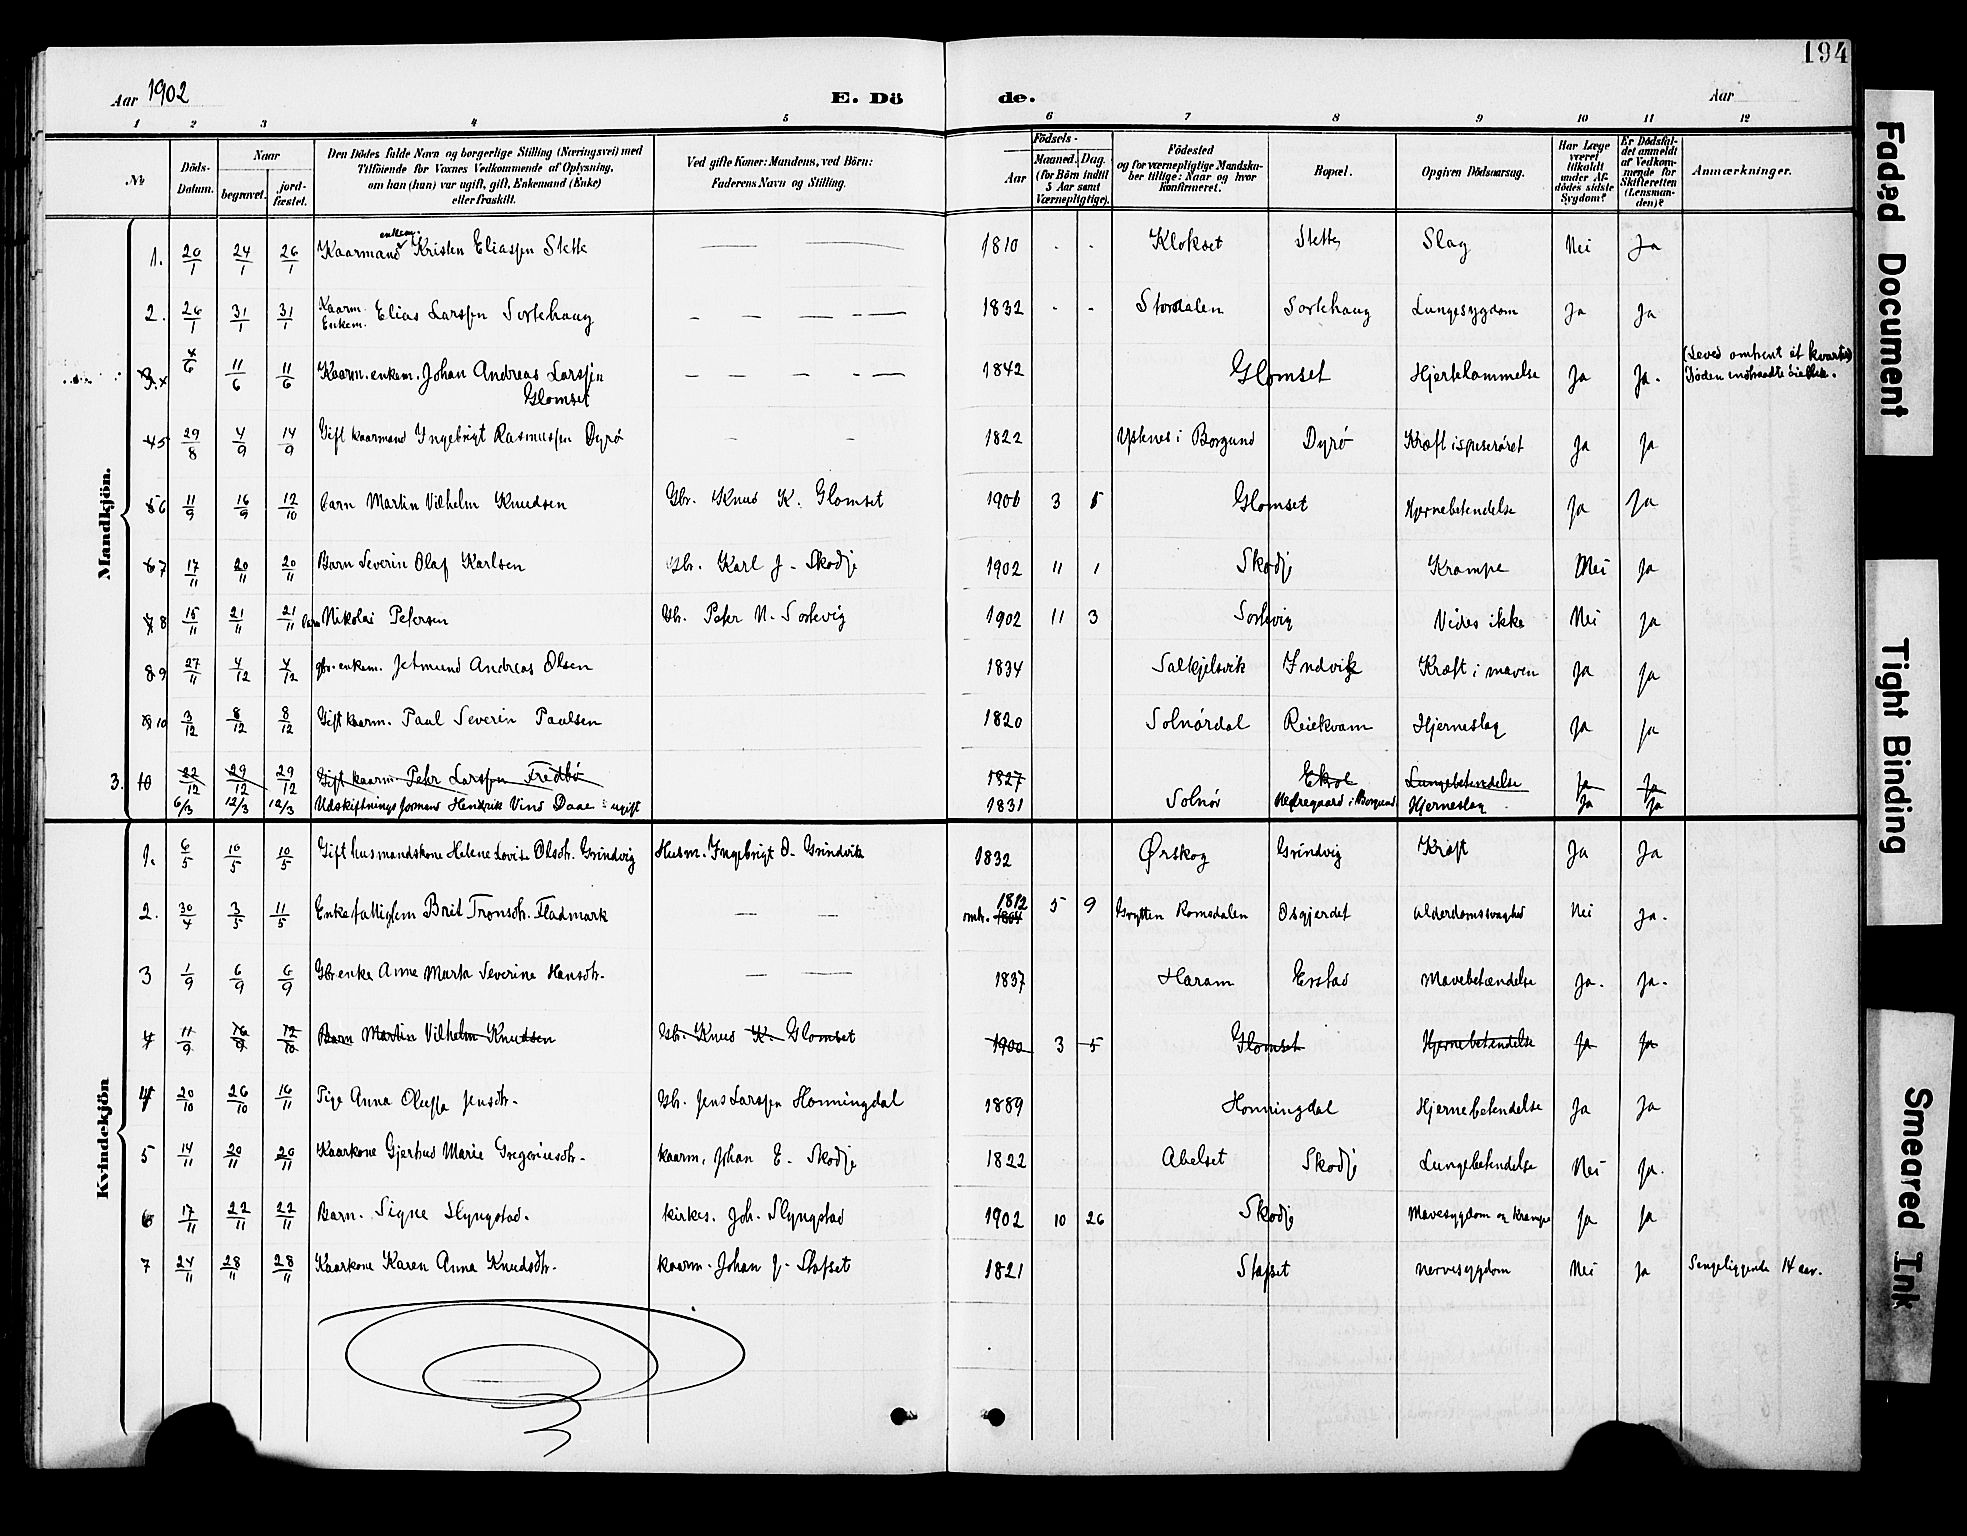 194
Aar 1902 E. Dö de. Aar
1 2 3 4 5 6 7 8 9 10 11 12
№ Döds-Datum. Naar begravet. jord-fæstet. Den Dödes fulde Navn og borgerlige Stilling (Næringsvei) med Tilföiende for Voxnes Vedkommende af Oplysning, om han (hun) var ugift, gift, Enkemand (Enke) eller fraskilt. Ved gifte Koner: Mandens, ved Börn: Faderens Navn og Stilling. Födsels- Aar Maaned. Dag. (for Börn indtil 5 Aar samt Værnepligtige). Födested og for værnepligtige Mandskaber tillige: Naar og hvor konfirmeret. Bopæl. Opgiven Dödsaarsag. Har Læge været tilkaldt under Afdödes sidste Sygdom? Er Dödsfaldet anmeldt af Vedkommende for Skifteretten (Lensmanden)? Anmærkninger.
Mandkjön.
1. 20/1 24/1 26/1 Kaarmand enkem. Kristen Eliassen Stette 1810 Klokset Stette Slag Nei Ja
2. 26/1 31/1 31/1 Kaarm. Enkem. Elias Larssen Sortehaug 1832 Stordalen Sortehaug Lungesygdom Ja Ja
3. 4/6 11/6 11/6 Kaarm. enkem. Johan Andreas Larssen Glomset 1842 Glomset Hjertelammelse Ja Ja. (Leved omtrent et kvarter) Døden indtraadte
45 29/8 4/9 14/9 Gift kaarmand Ingebrigt Rasmussen Dyrö 1822 i Borgund Dyrö Kræft i spiserøret Ja Ja
56 11/9 16/9 12/10 barn Martin Vilhelm Knudsen Gbr. Knud K. Glomset 1900 3 5 Glomset Hjernebetendelse Ja Ja
67 17/11 20/11 20/11 Barn Severin Olaf Karlsen Gbr. Karl J. Skodje 1902 11 1 Skodje Krampe Nei Ja
78 15/11 21/11 21/11 barn Nikolai Petersen Gbr. Peter N. Sortevig 1902 11 3 Sortevig Vides ikke Nei Ja
89 27/11 4/12 4/12 gbr. enkem. Jetmund Andreas Olsen 1834 Salkjelsvik Indvik Kræft i maven Ja Ja
9 10 3/12 8/12 8/12 Gift kaarm. Paul Severin Paulsen 1820 Solnørdal Reiekvam Hjerneslag Ja Ja
3. 10 22/12 29/12 29/12 Gift kaarm. Peter Larssen Fredbö 1827 Lungebetendelse Ja Ja
6/3 12/3 12/3 Udskiftningsformand Hendrik Vind Daae: ugift 1831 Solnør Nedregaard i Borgund Hjerneslag Ja Ja
Kvindekjön
1. 6/5 10/5 10/5 Gift husmandskone Helene Lovise Olsdtr. Grindvig Husm. Ingebrigt O. Grindvik 1832 Ørskog Grindvig Kræft Ja Ja
2. 30/4 3/5 11/5 Enke fattiglem Brit Tronsdtr. Fladmark omtr. 1804 1812 5 9 Grytten Romsdalen Osgjerdet alderdomssvaghed Nei Ja.
3 1/9 6/9 6/9 Gbr enke Anne Marta Severine Hansdtr. 1837 Haram Erstad Mavebetændelse Ja. Ja.
4 11/9 16/9 12/10 Barn Martin Vilhelm Knudsen Gbr. Knud K. Glomset 1900 3 5 Glomset Hjernebetendelse Ja Ja
4 20/10 26/10 16/11 Pige Anna Oluffa Jensdtr. Gbr. Jens Larssen Honningdal 1889 Honningdal Hjernebetendelse Ja Ja
5 14/11 20/11 20/11 Kaarkone Gjertrud Marie Gregoriusdtr. kaarm. Johan E. Skodje 1822 Abelset Skodje Lungebetendelse Nei Ja.
6 17/11 22/11 22/11 Barn. Signe Slyngstad. kirkes. Joh. Slyngstad 1902 10 26 Skodje Mavesygdom og Krampe Ja Ja
7 24/11 28/11 28/11 Kaarkone Karen Anna Knudsdtr. kaarm. Johan J. Stafset 1821 Stafset nervesygdom Nei Ja Sengeliggende 14 aar.
Faded Document
Tight Binding
Smeared Ink